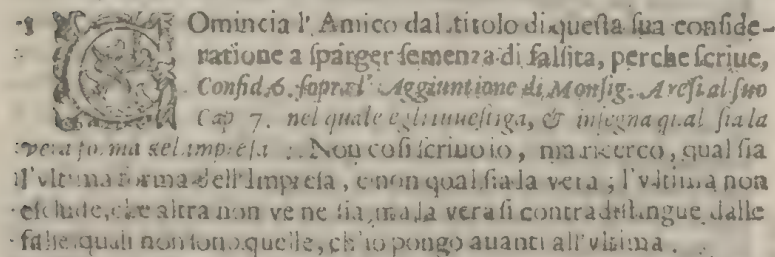 1 COmincia l' Amico dal titolo di questa sua conside-
ratione a sparger semenza di falsita, perche scriue,
Consid. 6. sopra l' Aggiuntione di Monsig. Aresi al suo
Cap 7. nel quale egli inuestiga, & insegna qual sia la
vera forma del impresa . Non cosi scriuo io, ma ricerco, qual sia
l'vltima forma dell'Impresa, e non qual sia la vera; l'vltima non
esclude, che altra non ve ne sia, ma la vera si contradistingue dalle
false quali non sono quelle, ch'io pongo auanti all'vltima .